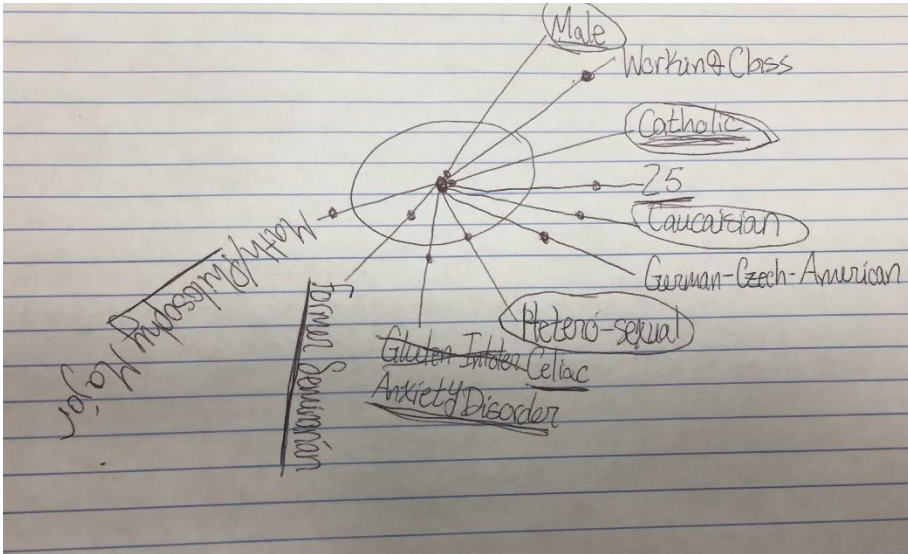 Male
Working Class
Catholic
25
Caucasian
German-Czech-American
Hetero-sexual
Gluten Intoler Celiac
Anxiety Disorder
Former Seminarian
Math/Philosophy Major